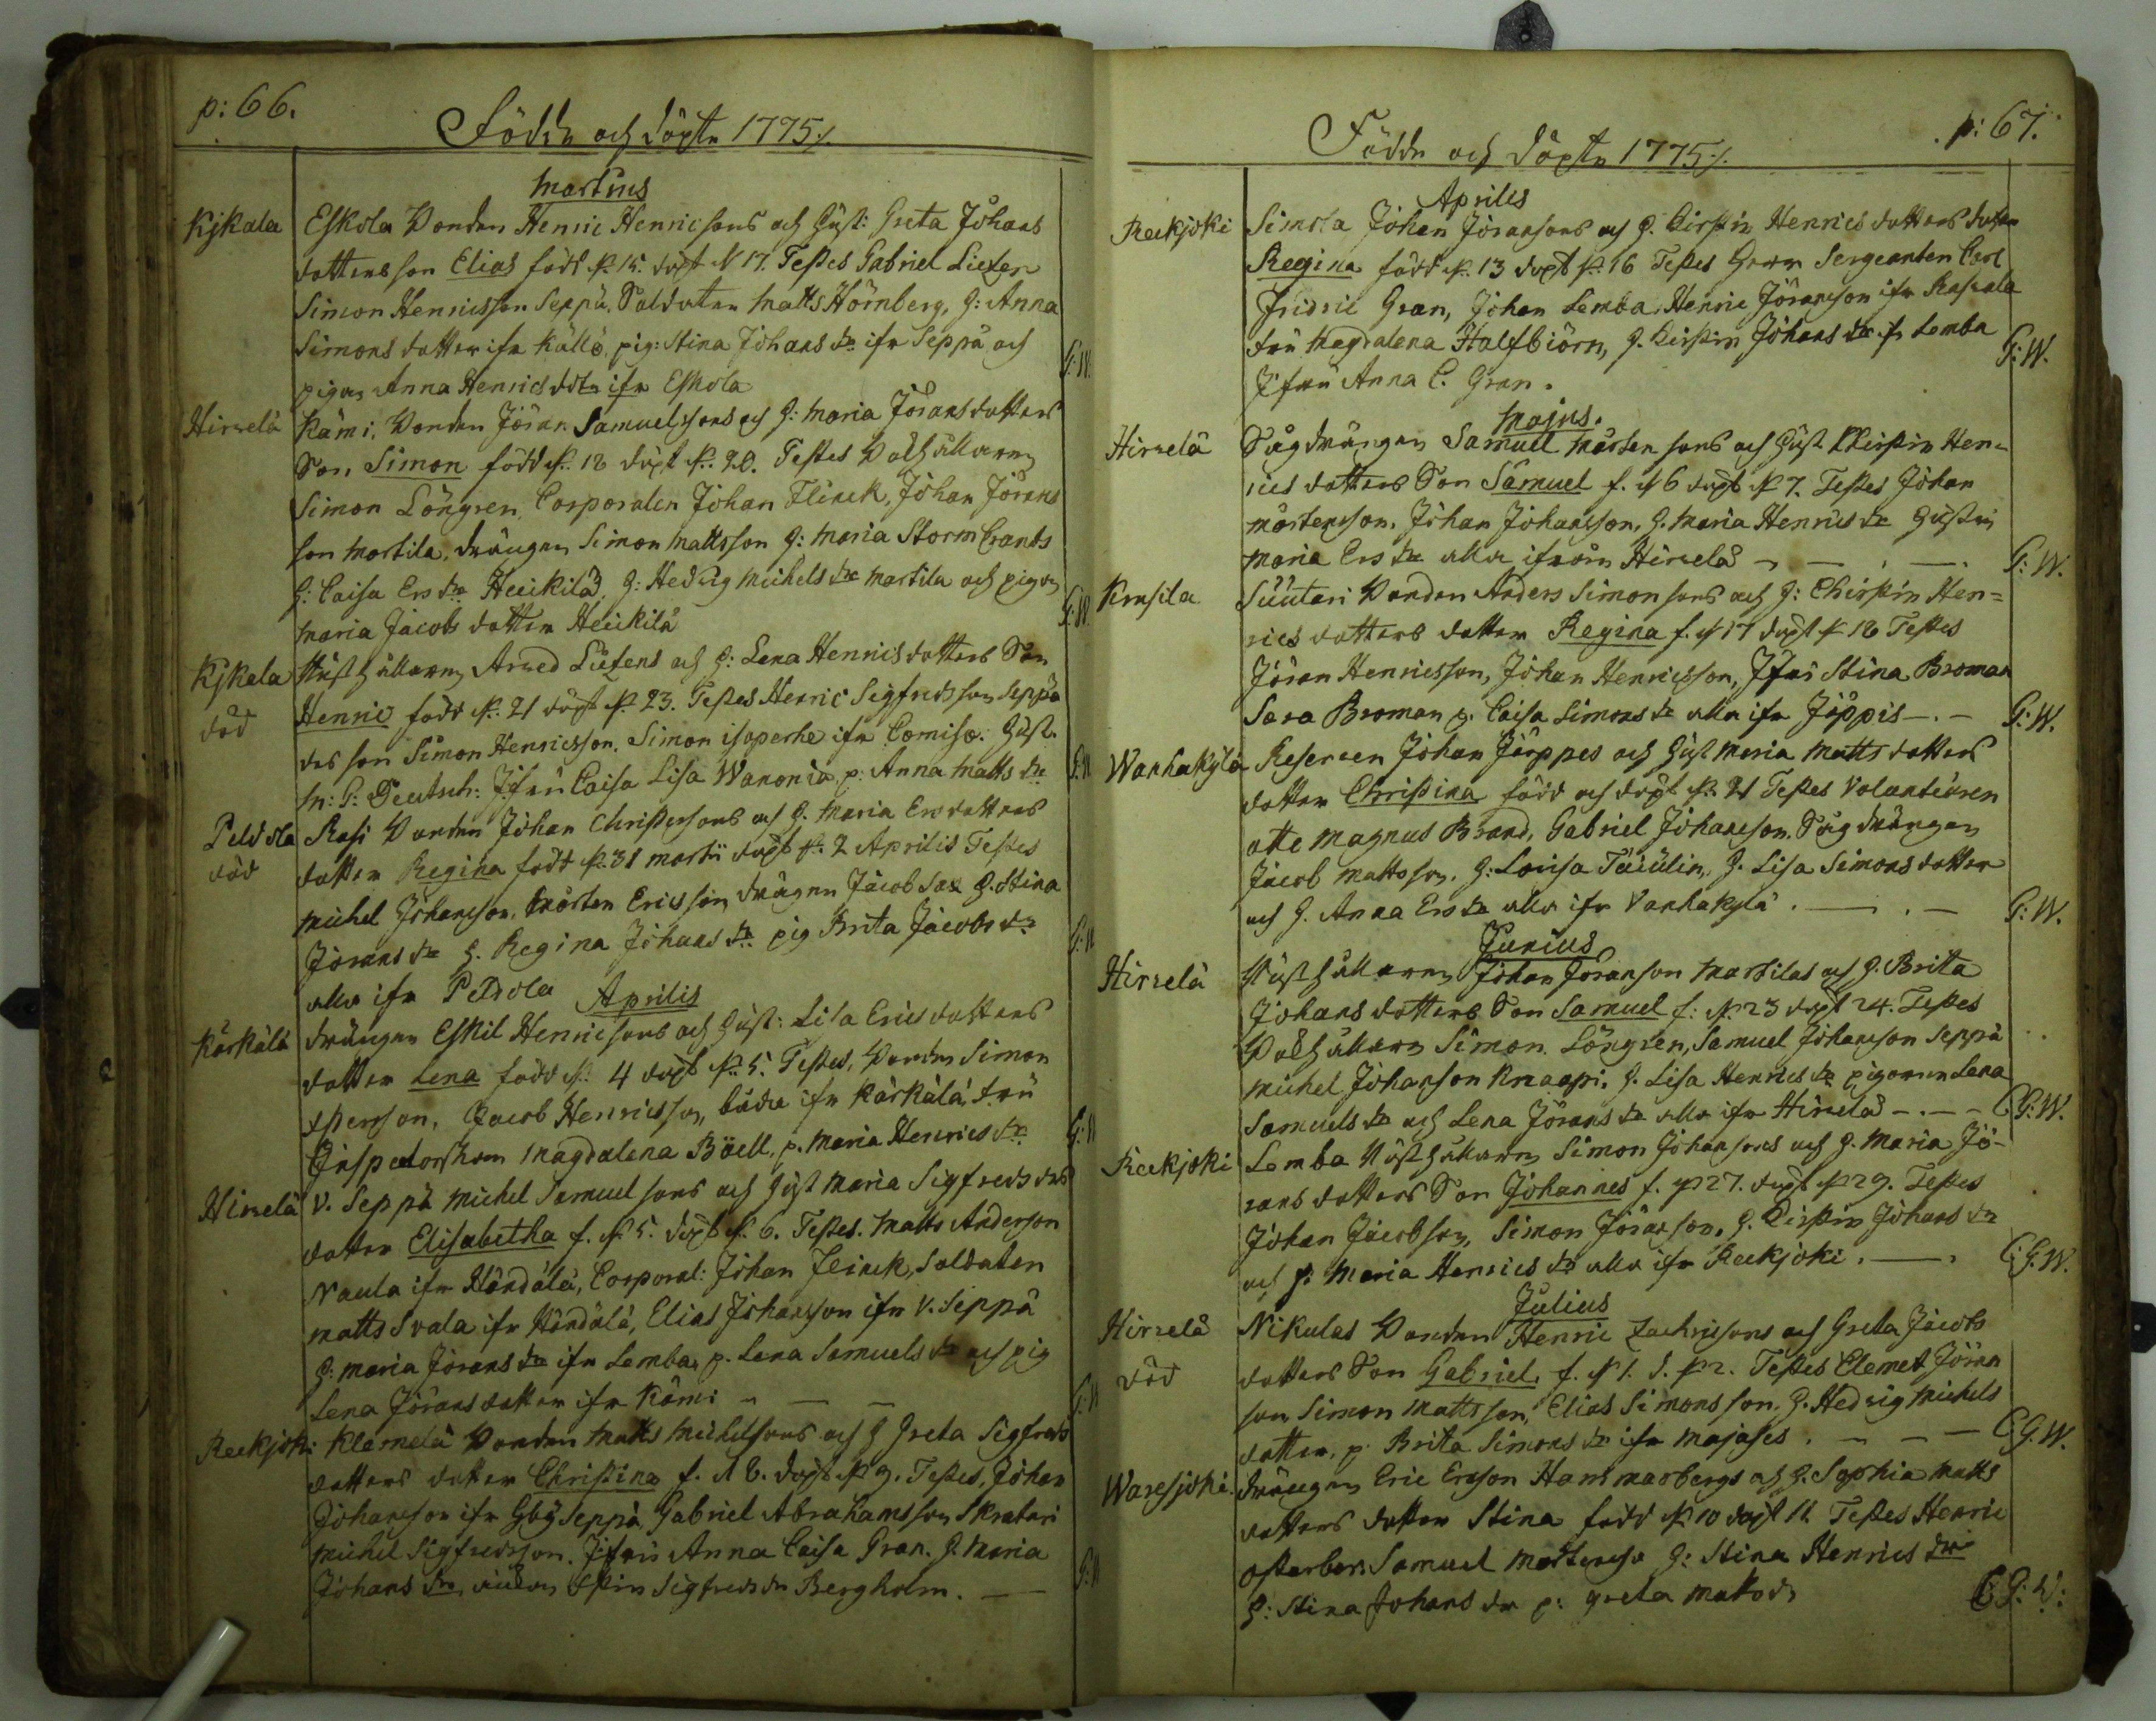 p: 66.
Födde och döpte 1775 ./.
Martius
Kjkala Eskola Bonden Henric Henricsons och Hust: Greta Johans
dotters son Elias född d. 15. döpt d 17. Testes Gabriel Liefen
Simon Henricsson Seppä, Soldaten Matts Hörnberg, H: Anna
Simons dotter ifr Källö, pig: Stina Johans dr ifr Seppä och
pigan Anna Henrics dotr ifr Eskola G: W.
Hirselä Kämi, Bonden Jöran Samuelssons och H: Maria Jörans dotters
Son, Simon född d. 18 döpt d. 20. Testes
Simon Löngren, Corporalen Johan Flinck, Johan Jörans
son Martila, drängen Simon Mattsson H: Maria Storm Crants
H: Caisa Ers dr Heickilä, H: Hedvig Michels dr Martila och pigan
Maria Jacobs dotter Heickilä G: W.
Kjkala Arved Liefens och H: Lena Henrics dotters Son
död Henric född d. 21 döpt d. 23. Testes Henric Sigfredsson Seppä
des son Simon Henricsson, Simon isoperhe ifr Comiso. Hust.
Jfru Caisa Lisa Wanonia, p. Anna Matts dr
Peldola Rasi Bonden Johan Christersons och H. Maria Ers dotters
död dotter Regina född d. 31 Martii döpt d. 2 Aprilis Testes
Michel Johansson, Mårten Ericsson drängen Jacob Sax H. Stina
Jörans dr H. Regina Johans dr pig Brita Jacobs dr
alla ifr Peldola
Aprilis
Kärkälä drängen Eskil Henricsons och Hust: Lisa Erics dotters
dotter Lena född d. 4 döpt d. 5. Testes, Bonden Simon
Jacob Henricsson, både ifr Kärkälä, fru
Inspectorskan Magdalena Böell, p. Maria Henrics dr
Hirselä V. Seppä Michel Samuelsons och Hust Maria Sigfreds drs
dotter Elisabetha f. d. 5. döpt d. 6. Testes. Matts Anderson
Naula ifr Höndälä, Corporal: Johan Flinck, Soldaten
Matts Svala ifr Höndälä, Elias Johansson ifr V. Seppä
H: Maria Jörans dr ifr Lemba, p. Lena Samuels dr och pig
Lena Jörans dotter ifr Kämi
Reckjoki Klemelä Bonden Matts Michelsons och H Greta Sigfreds
dotters dotter Christina f. d 8. döpt d 9. Testes, Johan
Johansson ifr Gby Seppä, Gabriel Abrahamsson Skratari
Michel Sigfredsson. Jfru Anna Caisa Gran. H. Maria
Johans dr Sigfreds dr Bergholm.
p: 67.
Födde och döpte 1775 ./.
Aprilis
Reckjoki Simola Johan Jöransons och H. Kirstin Henrics dotters dotter
Regina född d. 13 döpt d. 16 Testes Herr Sergeanten Carl
Fridric Gran, Johan Lemba, Henric Jöranson ifr Rasala
fru Magdalena Halfbiörn, H. Kirstin Johans dr ifr Lemba
Jfru Anna C. Gran. G: W.
Majus.
Hirselä Sågdrängen Samuel Mårten sons och Hust Kirstin Hen=
rics dotters Son Samuel f. d 6 döpt d 7. Testes Johan
Mårtensson, Johan Johansson, H. Maria Henrics dr Hustru
Maria Ers dr alla ifrån Hirselä G: W.
Krusila Suutari Bonden Anders Simon sons och H: Christin Hen=
rics dotters dotter Regina f. d 17 döpt d 18 Testes
Jöran Henricsson, Johan Henricsson, Jfru Stina Broman
Sara Broman p. Caisa Simons dr alla ifr Jöppis G: W.
Wanhakylä Reserven Johan Jerppes och Hust Maria Matts dotters
dotter Christina född och döpt d. 21 Testes Volanteuren
Otte Magnus Brand, Gabriel Johansson, Sågdrängen
Jacob Mattsson, H: Lovisa H. Lisa Simons dotter
och H. Anna Ers dr alla ifr Vanhakylä G: W.
Junius
Hirselä Johan Jöranson Martilas och H. Brita
Johans dotters Son Samuel f: d. 23 döpt 24. Testes
Simon Löngren, Samuel Johansson Seppä
Michel Johanson Knaapi. H. Lisa Henrics dr pigorna Lena
Samuels dr och Lena Jörans dr alla ifr Hirselä C G: W.
Reckjoki Lemba Simon Johansons och H. Maria Jö-
rans dotters Son Johannes f. d 27. döpt d 29. Testes
Johan Jacobson, Simon Jöranson, H. Kirstin Johans dr
och p: Maria Henrics dr alla ifr Reckjoki. C: G. W.
Julius
Hirselä Nikulas Bonden Henric Zachrisons och Greta Jacobs
död dotters Son Gabriel f. d 1. d. d 2. Testes Clemet Jöran
son Simon Mattsson, Elias Simonsson, H. Hedvig Michels
dotter, p. Brita Simons dr ifr Majases. C G. W.
Waresjoki. drängen Eric Ersson Hammarbergs och H. Sophia Matts
dotters dotter Stina född d. 10 döpt 11. Testes Henric
Österberg Samuel Mårtensson H: Stina Henrics dr
H: Stina Johans dr p: Greta Matts dr C G: W: